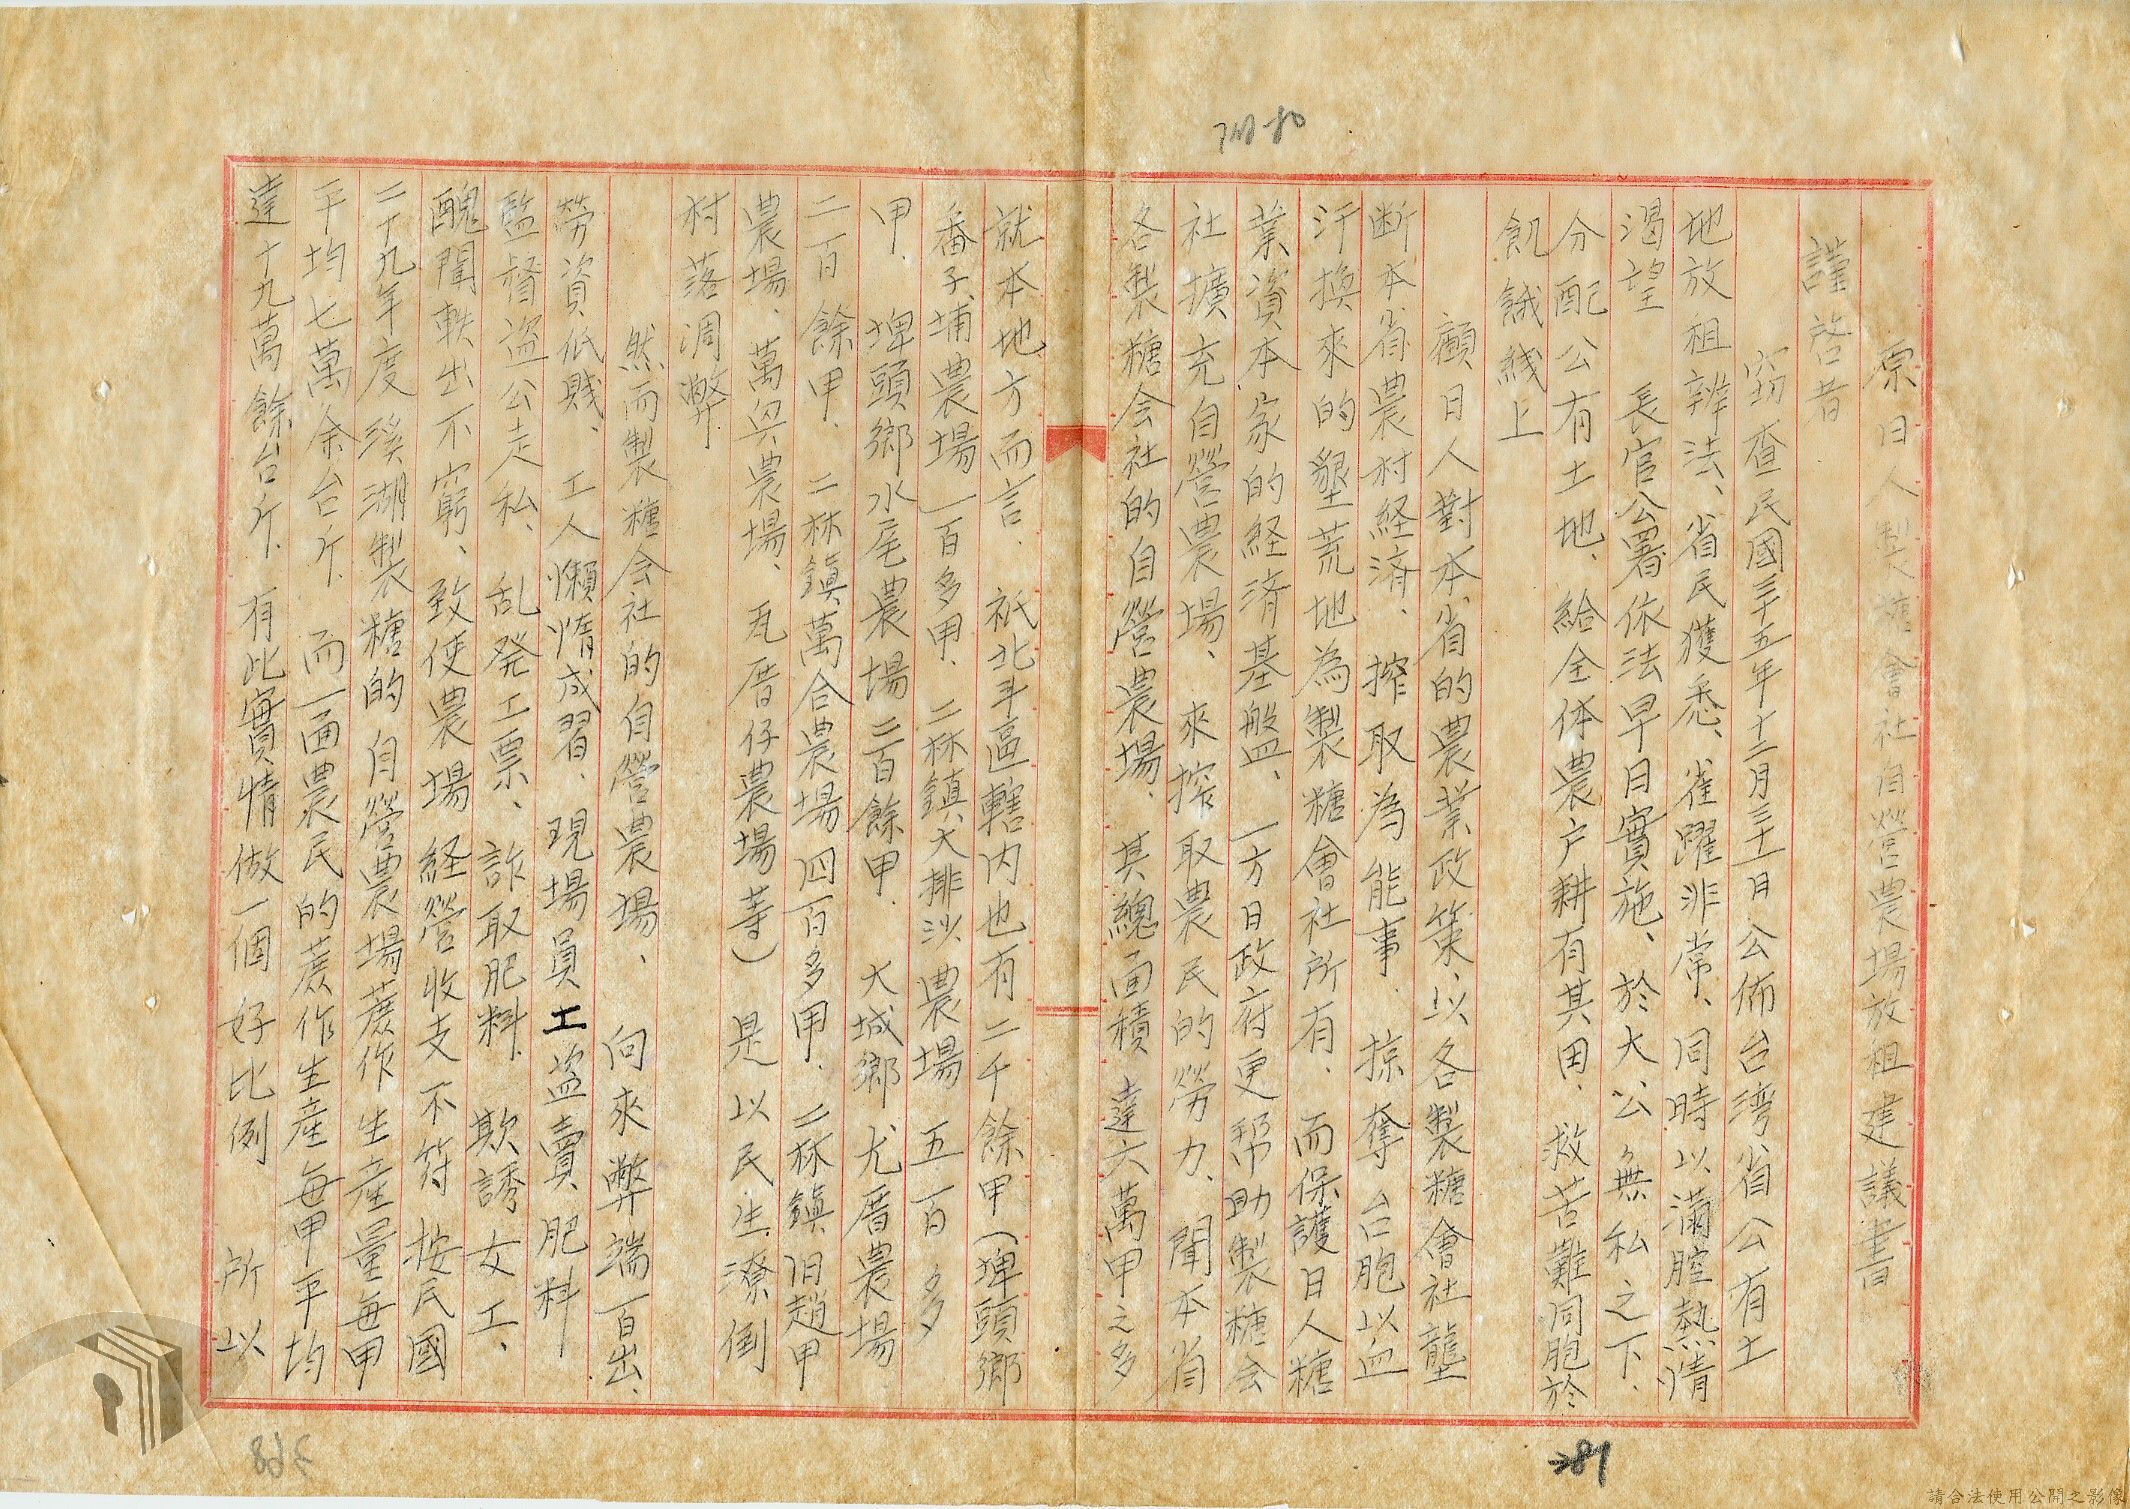 原日人製糖會社自營農場放租建議書
謹啓者
窃查民國三十五年十二月三十一日公佈台湾省公有土
地放租辨法、省民獲悉、雀躍非常、同時以滿腔熱情
渴望　長官公署依法早日實施、於大公無私之下、
分配公有土地、給全体農户耕有其田、救苦難同胞於
飢餓綫上
顧日人對本省的農業政策、以各製糖會社壟
断本省農村経済、搾取為能事、掠奪台胞以血
汗換來的墾荒地為製糖會社所有、而保護日人糖
業資本家的経済基盤、一方日政府更帮助製糖会
社擴充自營農場、來搾取農民的勞力、聞本省
各製糖会社的自營農場、其總面積達六萬甲之多
就本地方而言、祇北斗區轄内也有二千餘甲(埤頭鄉
番子埔農場一百多甲、二林鎮大排沙農場五百多
甲、埤頭鄉水尾農場二百餘甲、大城鄉尤厝農場
二百餘甲、二林鎮萬合農場四百多甲、二林鎮旧趙甲
農場、萬興農場、瓦厝仔農場等)是以民生潦倒
村落凋弊
然而製糖会社的自營農場、向來弊端百出、
勞資低賤、工人懶惰成習、現場員工盜賣肥料
監督盜公走私、乱発工票、詐取肥料、欺誘女工、
醜聞軼出不窮、致使農場経營收支不符　按民國
二十九年度溪湖製糖的自營農場蔗作生産量每甲
平均七萬余台斤、而一面農民的蔗作生産每甲平均
達十九萬餘台斤、有此實情做一個好比例　所以
381
368
請合法使用公開之影像